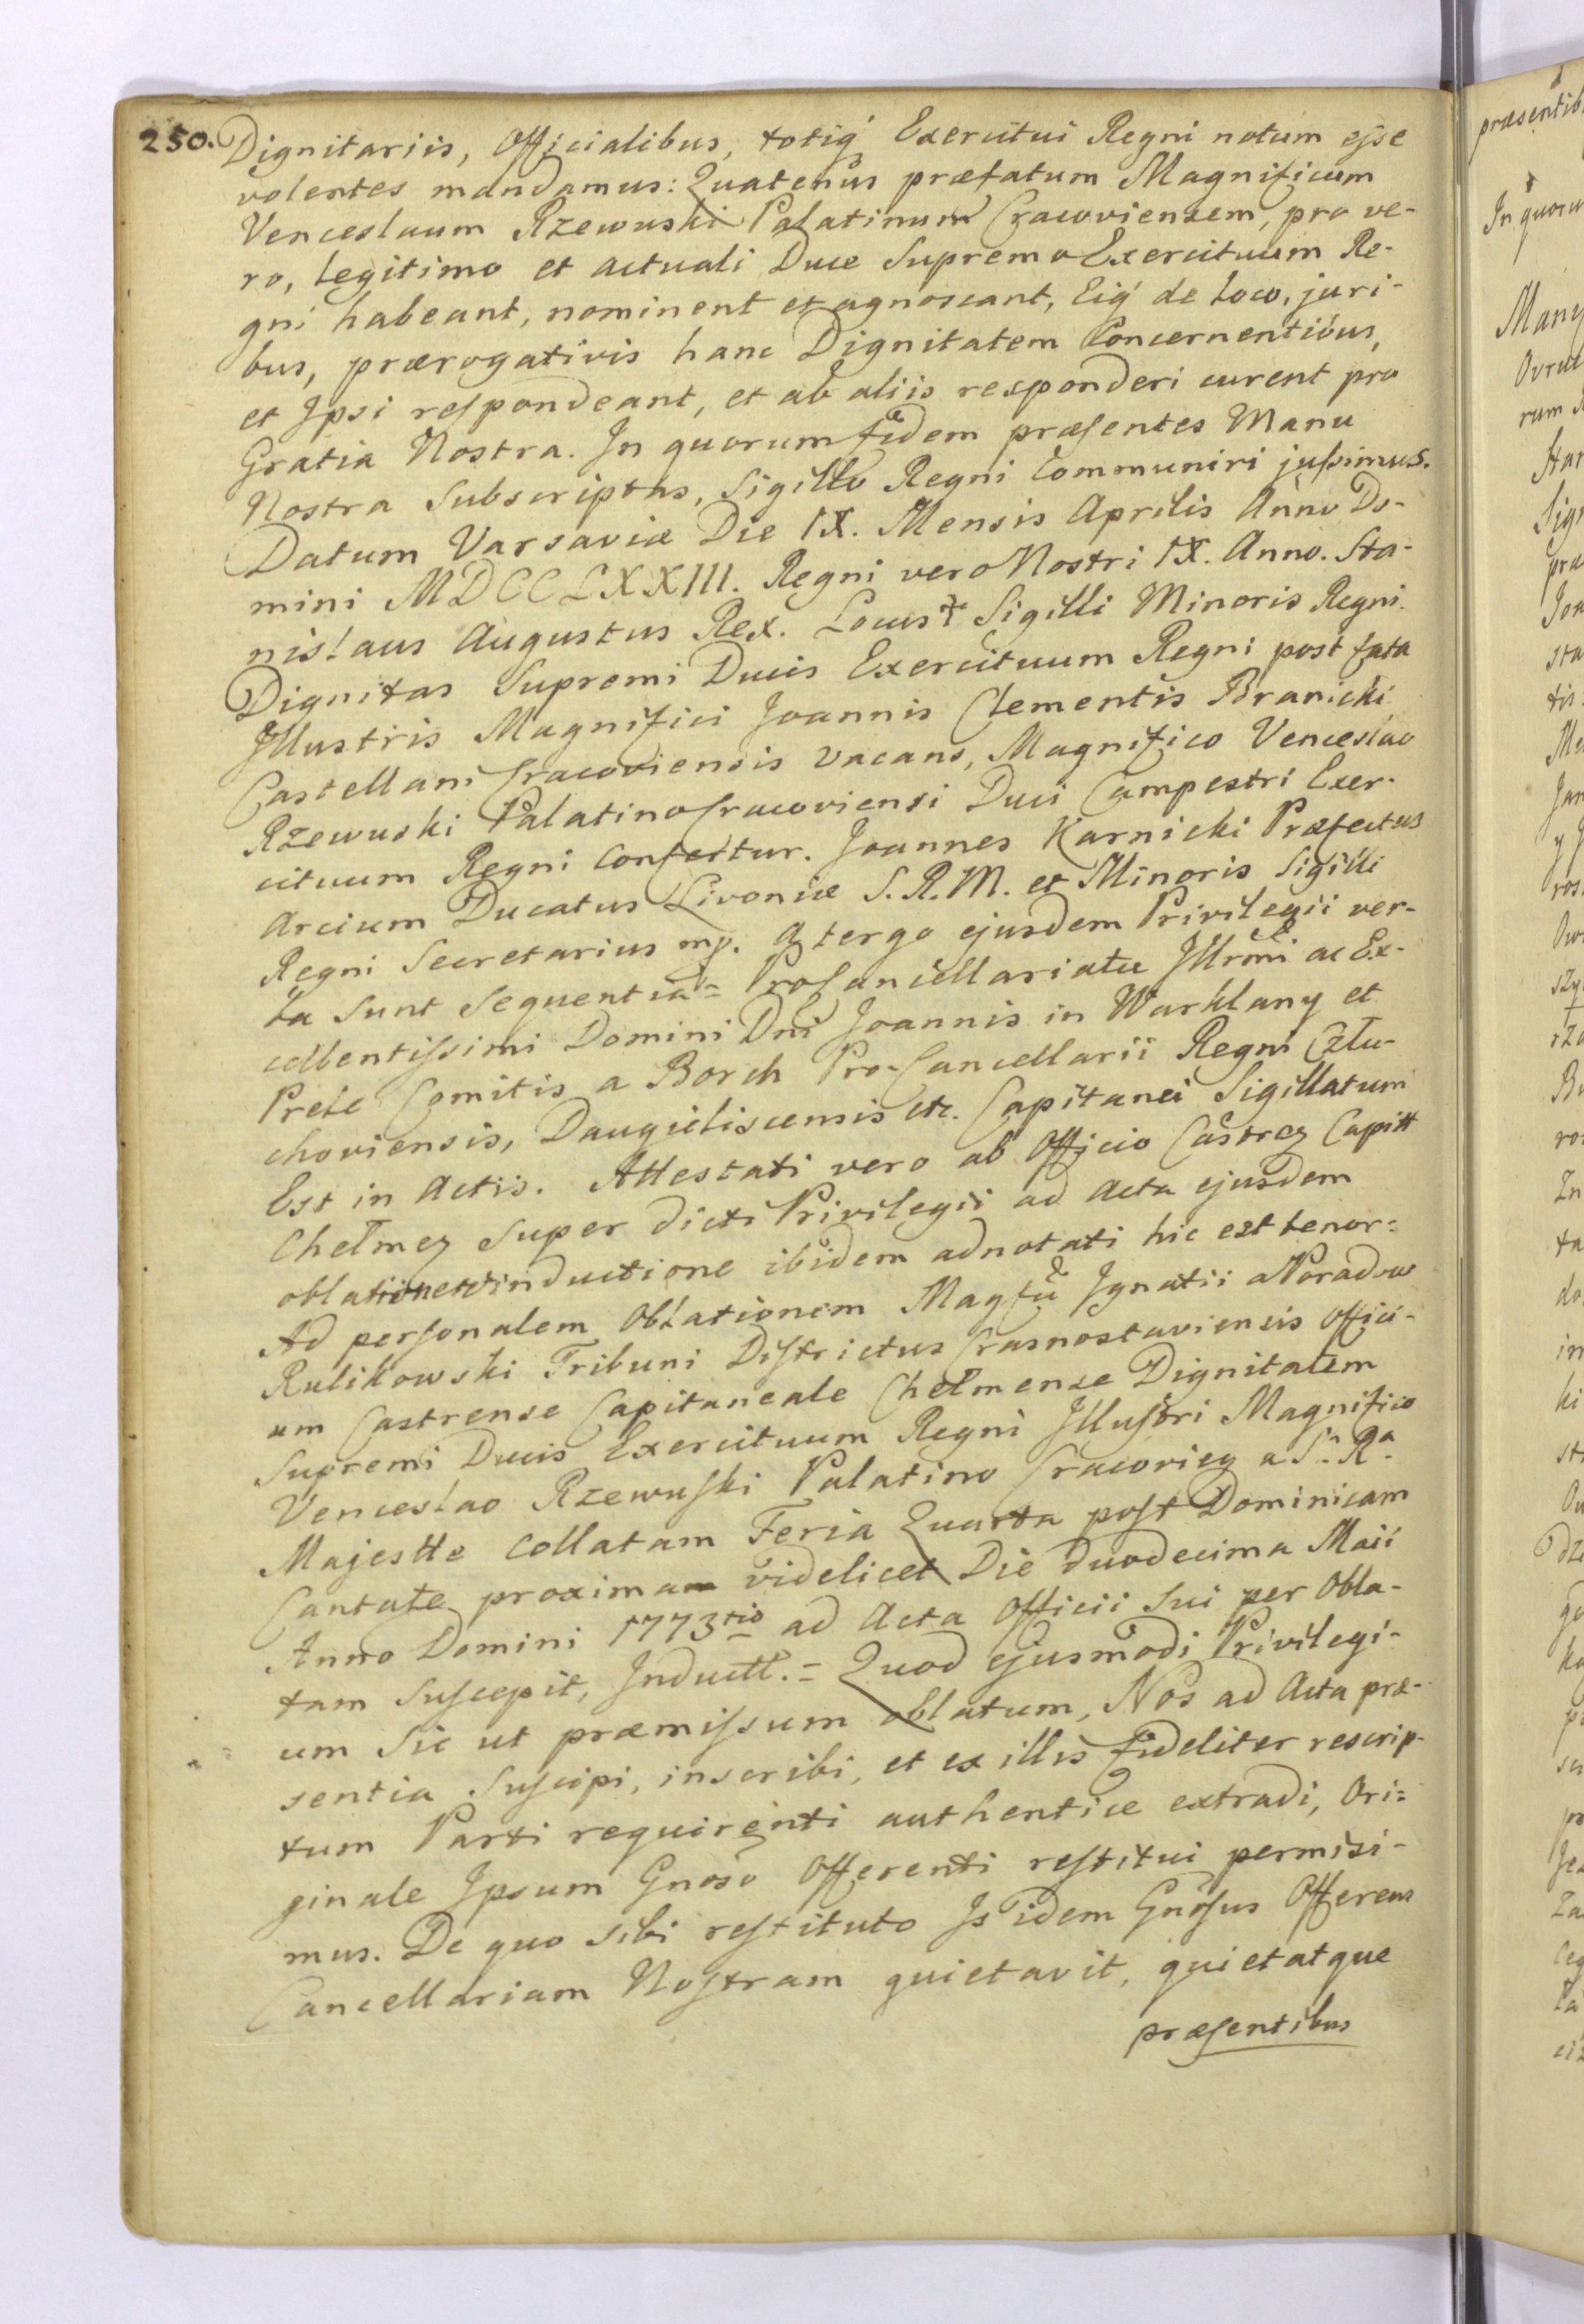 250. Dignitariis, Officialibus, totiq́ Exercitui Regni notum esse
volentes mandamus: Quatenus præfatum Magnificum
Venceslaum Rzewuski Palatinum Cracoviensem, pro ve-
ro, legitimo et actuali Duce Supremo Exercituum Re-
gni habeant, nominent et agnoscant, Eiq́ de loco, juri-
bus, prærogativis hanc Dignitatem Concernentibus,
et Ipsi reſpondeant, et ab aliis responderi curent pro
Gratia Nostra. In quorum fidem præſentes Manu
Nostra Subscriptas, Sigillo Regni Communiri juſsimus.
Datum Varsaviæ Die IX. Mensis Aprilis Anno Do-
mini MDCCLXXIII. Regni vero Nostri IX. Anno. Sta-
nislaus Augustus Rex. Locus Sigilli Minoris Regni.
Dignitas Supremi Ducis Exercituum Regni post fata
Illustris Magnifici Joannis Clementis Branicki
Castellani Cracoviensis vacans, Magnifico Venceslao
Rzewuski Palatino Cracoviensi Duci Campestri Exer-
cituum Regni Confertur. Joannes Karnicki Præfectus
Arcium Ducatus Livoniæ S. R. M. et Minoris Sigilli
Regni Secretarius mp. A tergo ejusdem Privilegii ver-
ba Sunt Sequentia = ProCancellariatu Illrmi ac Ex-
cellentiſsimi Domini Dni Joannis in Warklany et
Prele Comitis a Borch Pro-Cancellarii Regni Człu-
choviensis, Daugieliscensis etc. Capitanei Sigillatum
Est in Actis. Attestati vero ab Officio Castreꝫ Capitt
Chełmeꝫ super dicti Privilegii ad Acta ejusdem
oblatione et inductione ibidem adnotati hic est tenor =
Ad perſonalem Oblationem Magfii Ignatii a Poradow
Rulikowski Tribuni Diſtrictus Crasnostaviensis Offici-
um Castrense Capitaneale Chełmense Dignitatem
Supremi Ducis Exercituum Regni Illuſtri Magnifico
Venceslao Rzewuſki Palatino Cracovieꝫ a S.ᵃ R.ᵃ
Majestte Collatam Feria Quarta poſt Dominicam
Cantate proxima videlicet Die duodecima Maii
Anno Domini 1773tio ad Acta Officii Sui per Obla-
tam Suſcepit, Inductt. = Quod ejusmodi Privilegi-
um Sic ut præmiſsum oblatum, Nos ad Acta præ-
sentia Suſcipi, inscribi, et ex illis fideliter rescrip-
tum Parti requirenti authentice extradi, Ori=
ginale Ipsum Gnoso Offerenti reſtitui permisi-
mus. De quo sibi reſtituto Is idem Gnoſus Offerens
Cancellariam Noſtram quietavit, quietatque
præſentibus